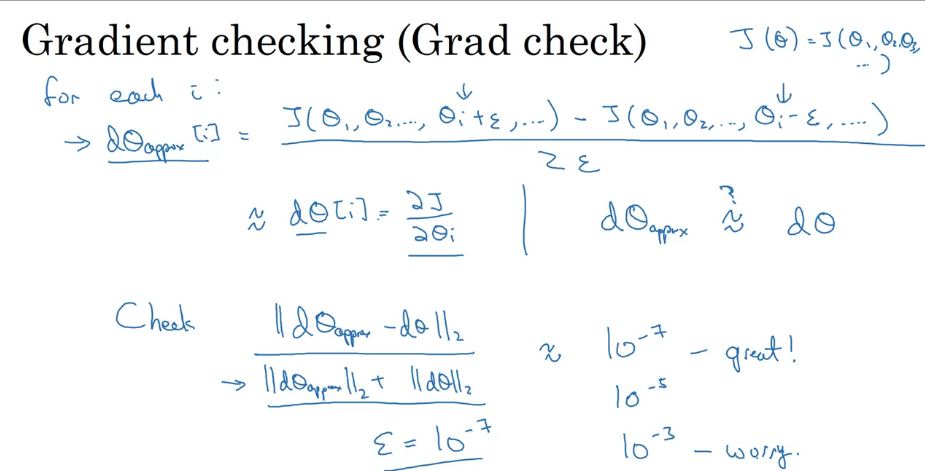 Gradient checking (Grad check)
J(θ) = J(θ₁, θ₂, θ₃, ...)
for each i:
→ dθapprox[i] = (J(θ₁, θ₂, ..., θi+ε, ...) - J(θ₁, θ₂, ..., θi-ε, ....)) / 2ε
≈ dθ[i] = ∂J/∂θi | dθapprox ≈? dθ
Check ||dθapprox - dθ||₂ / (||dθapprox||₂ + ||dθ||₂) ≈ 10⁻⁷ - great!
10⁻⁵
ε = 10⁻⁷ 10⁻³ - worry.